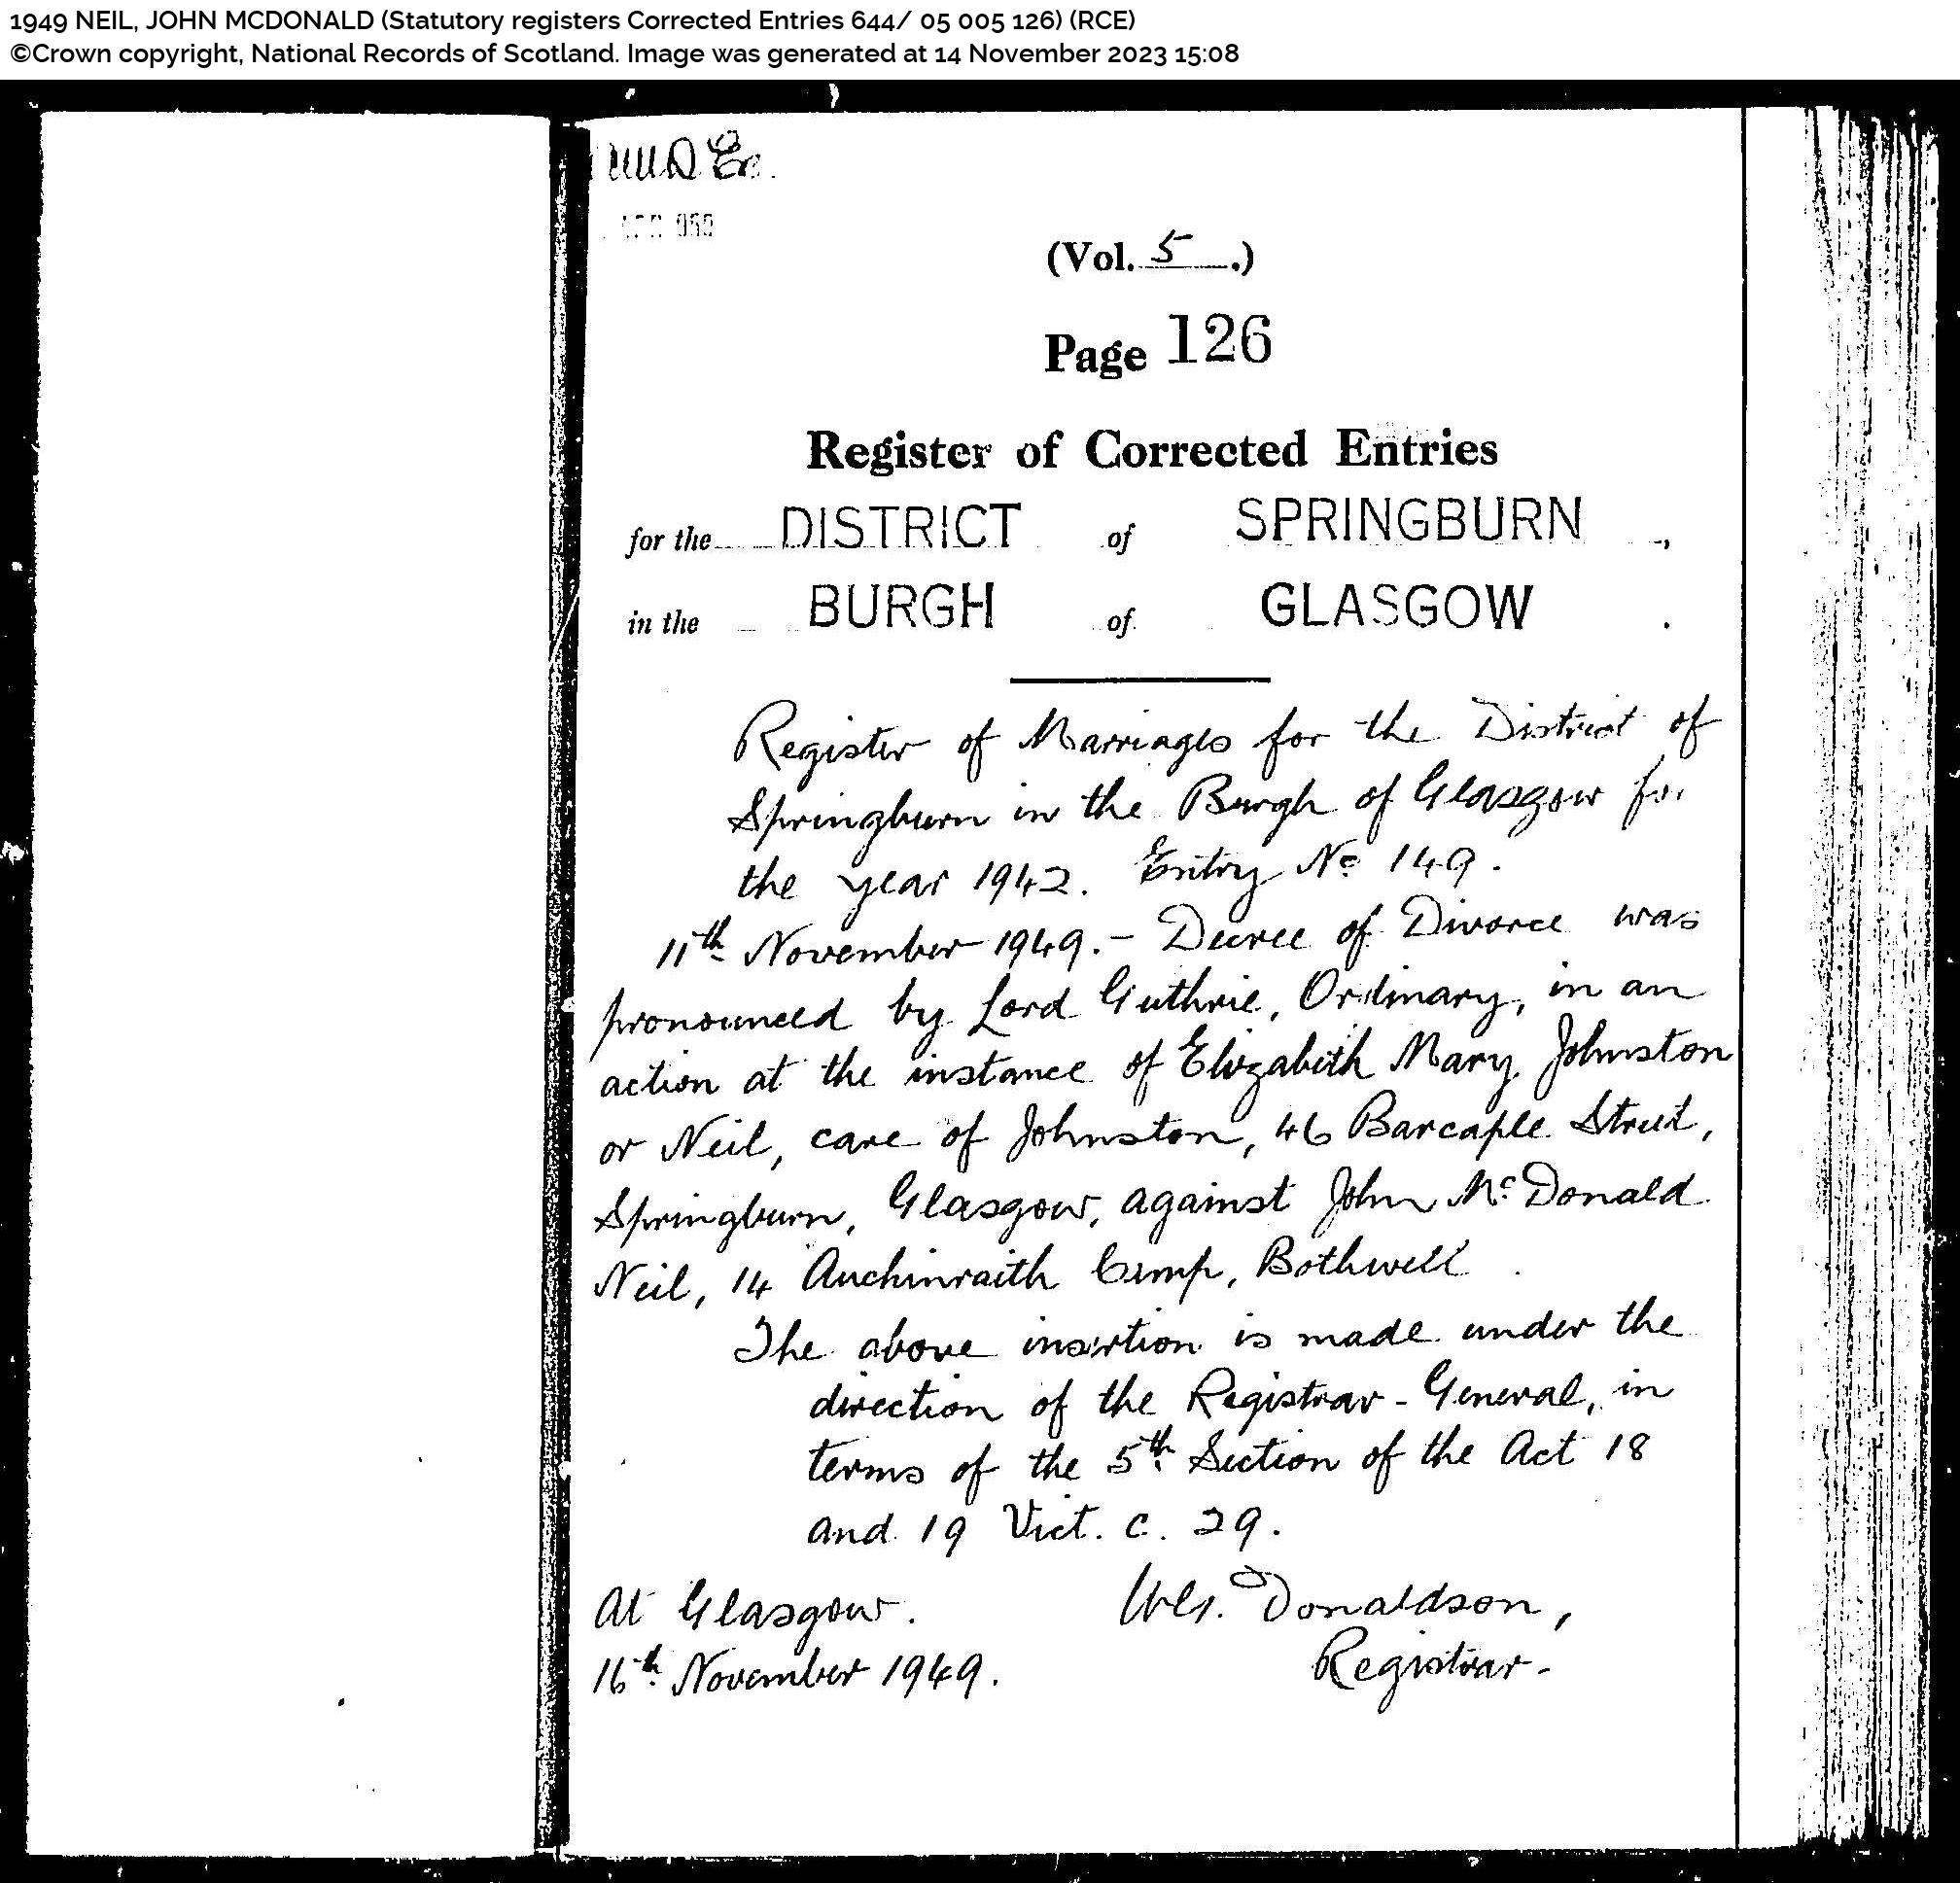 1949 NEIL, JOHN MCDONALD (Statutory registers Corrected Entries 644/ 05 005 126) (RCE)
©Crown copyright, National Records of Scotland. Image was generated at 14 November 2023 15:08
(Vol. 5 .)
Page 126
Register of Corrected Entries
for the DISTRICT of SPRINGBURN ,
in the BURGH of GLASGOW .
Register of Marriages for the District of
Springburn in the Burgh of Glasgow for
the year 1942. Entry No 149.
11th November 1949. - Decree of Divorce was
pronounced by Lord Guthrie, Ordinary, in an
action at the instance of Elizabeth Mary Johnston
or Neil, care of Johnston, 46 Barcaple Street,
Springburn, Glasgow, against John McDonald
Neil, 14 Auchinraith Camp, Bothwell.
The above insertion is made under the
direction of the Registrar-General, in
terms of the 5th Section of the Act 18
and 19 Vict. c. 29.
At Glasgow.
Donaldson,
16th November 1949.
Registrar.